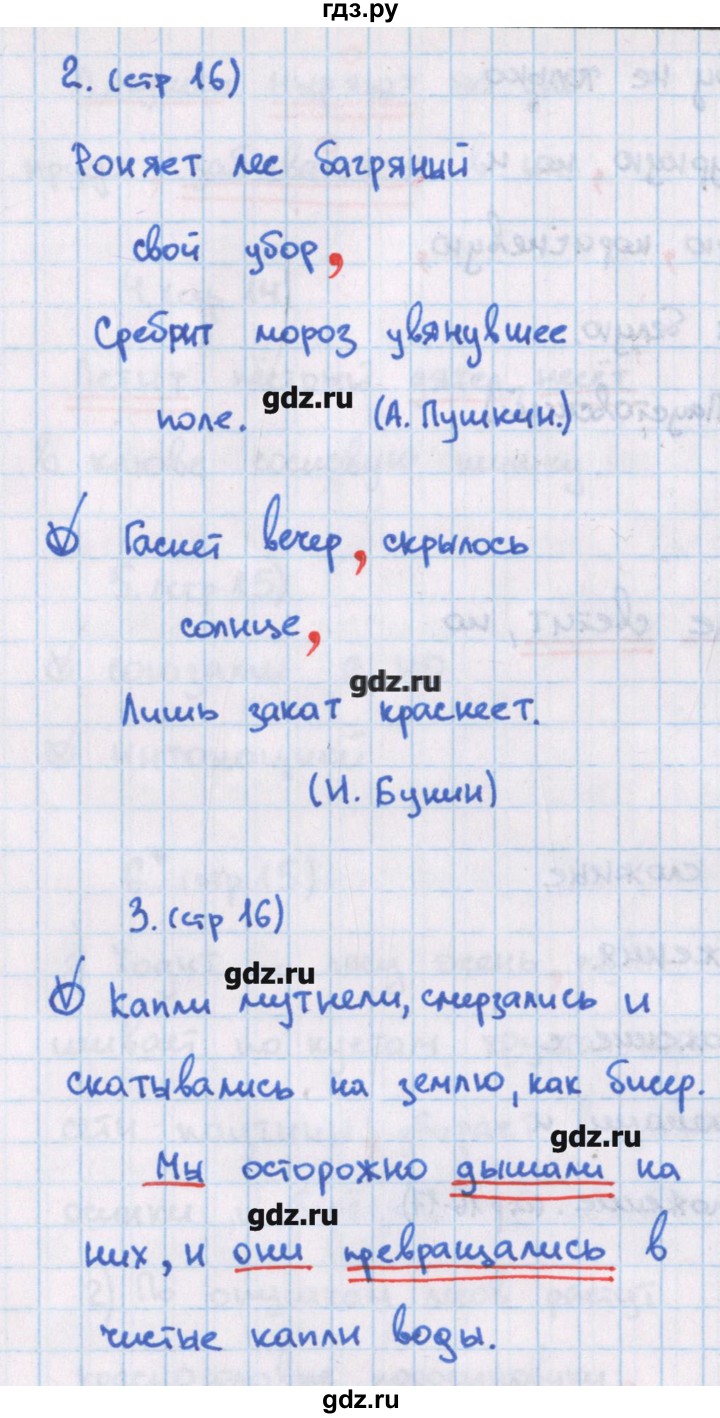 гдз.ру
2. (стр 16)
Роняет лес багряный
свой убор,
Сребрит мороз увянувшее
поле. (А. Пушкин.)
gdz.ru
V Гаснет вечер, скрылось
солнце,
gdz.ru
Лишь закат краснеет.
(И. Бунин)
3. (стр 16)
gdz.ru
V Капли мутнели, смерзались и
скатывались на землю, как бисер.
gdz.ru
Мы осторожно дышали на
gdz.ru
них, и они превращались в
чистые капли воды.
gdz.ru